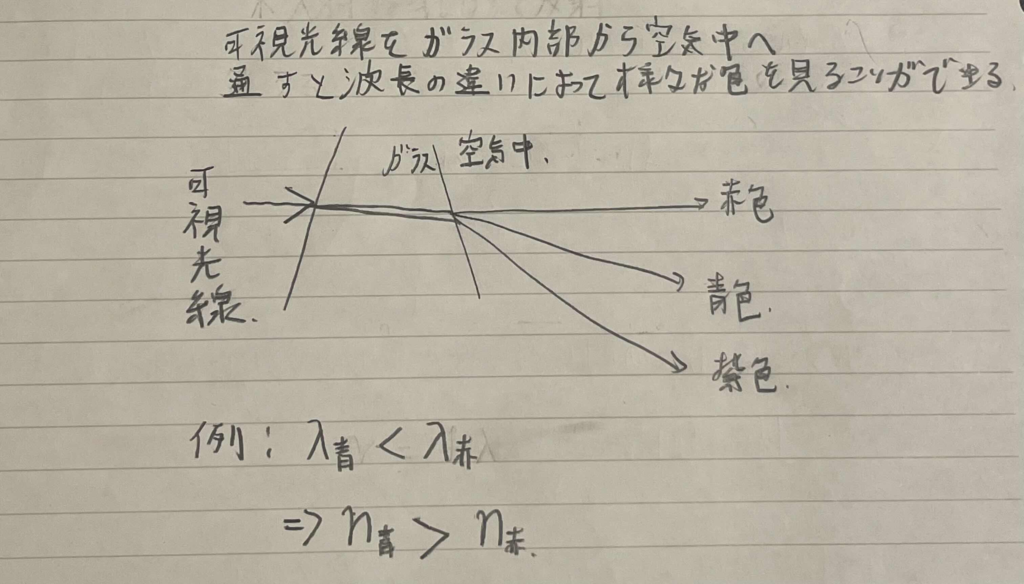 可視光線をガラス内部から空気中へ
通すと波長の違いによって様々な色を見ることができる.
ガラス 空気中.
可視光線.
赤色
青色.
紫色.
例: λ青 < λ赤
=> n青 > n赤.